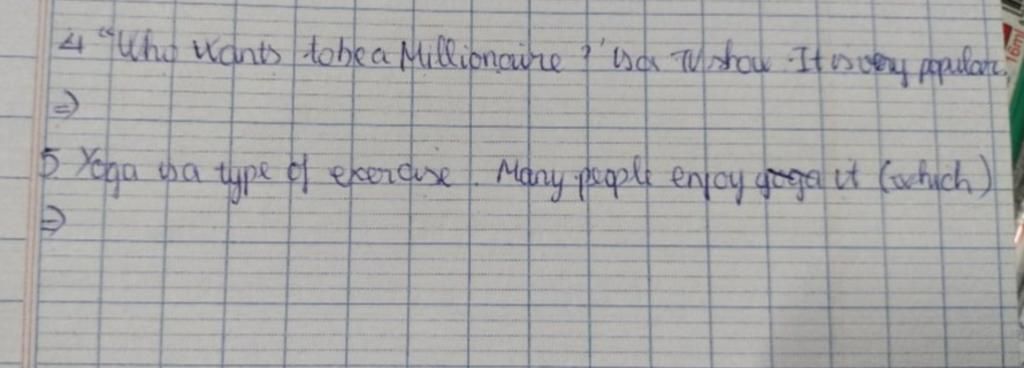 4 "Who wants to be a Millionaire?" is a TV show. It is very popular.
⇒
5 Yoga is a type of exercise. Many people enjoy yoga it (which)
⇒